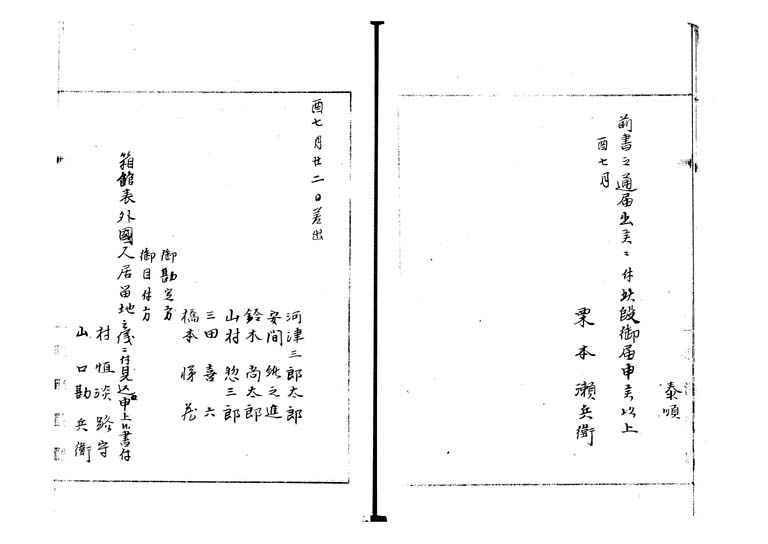 泰順
前書之通届出候ニ付此段御届申候以上
酉七月
栗本瀬兵衛
酉七月廿二日差出
河津三郎太郎
安間純之進
鈴木尚太郎
山村惣三郎
三田喜六
橋本悌蔵
御勘定方
御目付方
箱館表外國人居留地之儀ニ付見込申上候書付
村垣淡路守
山口勘兵衛